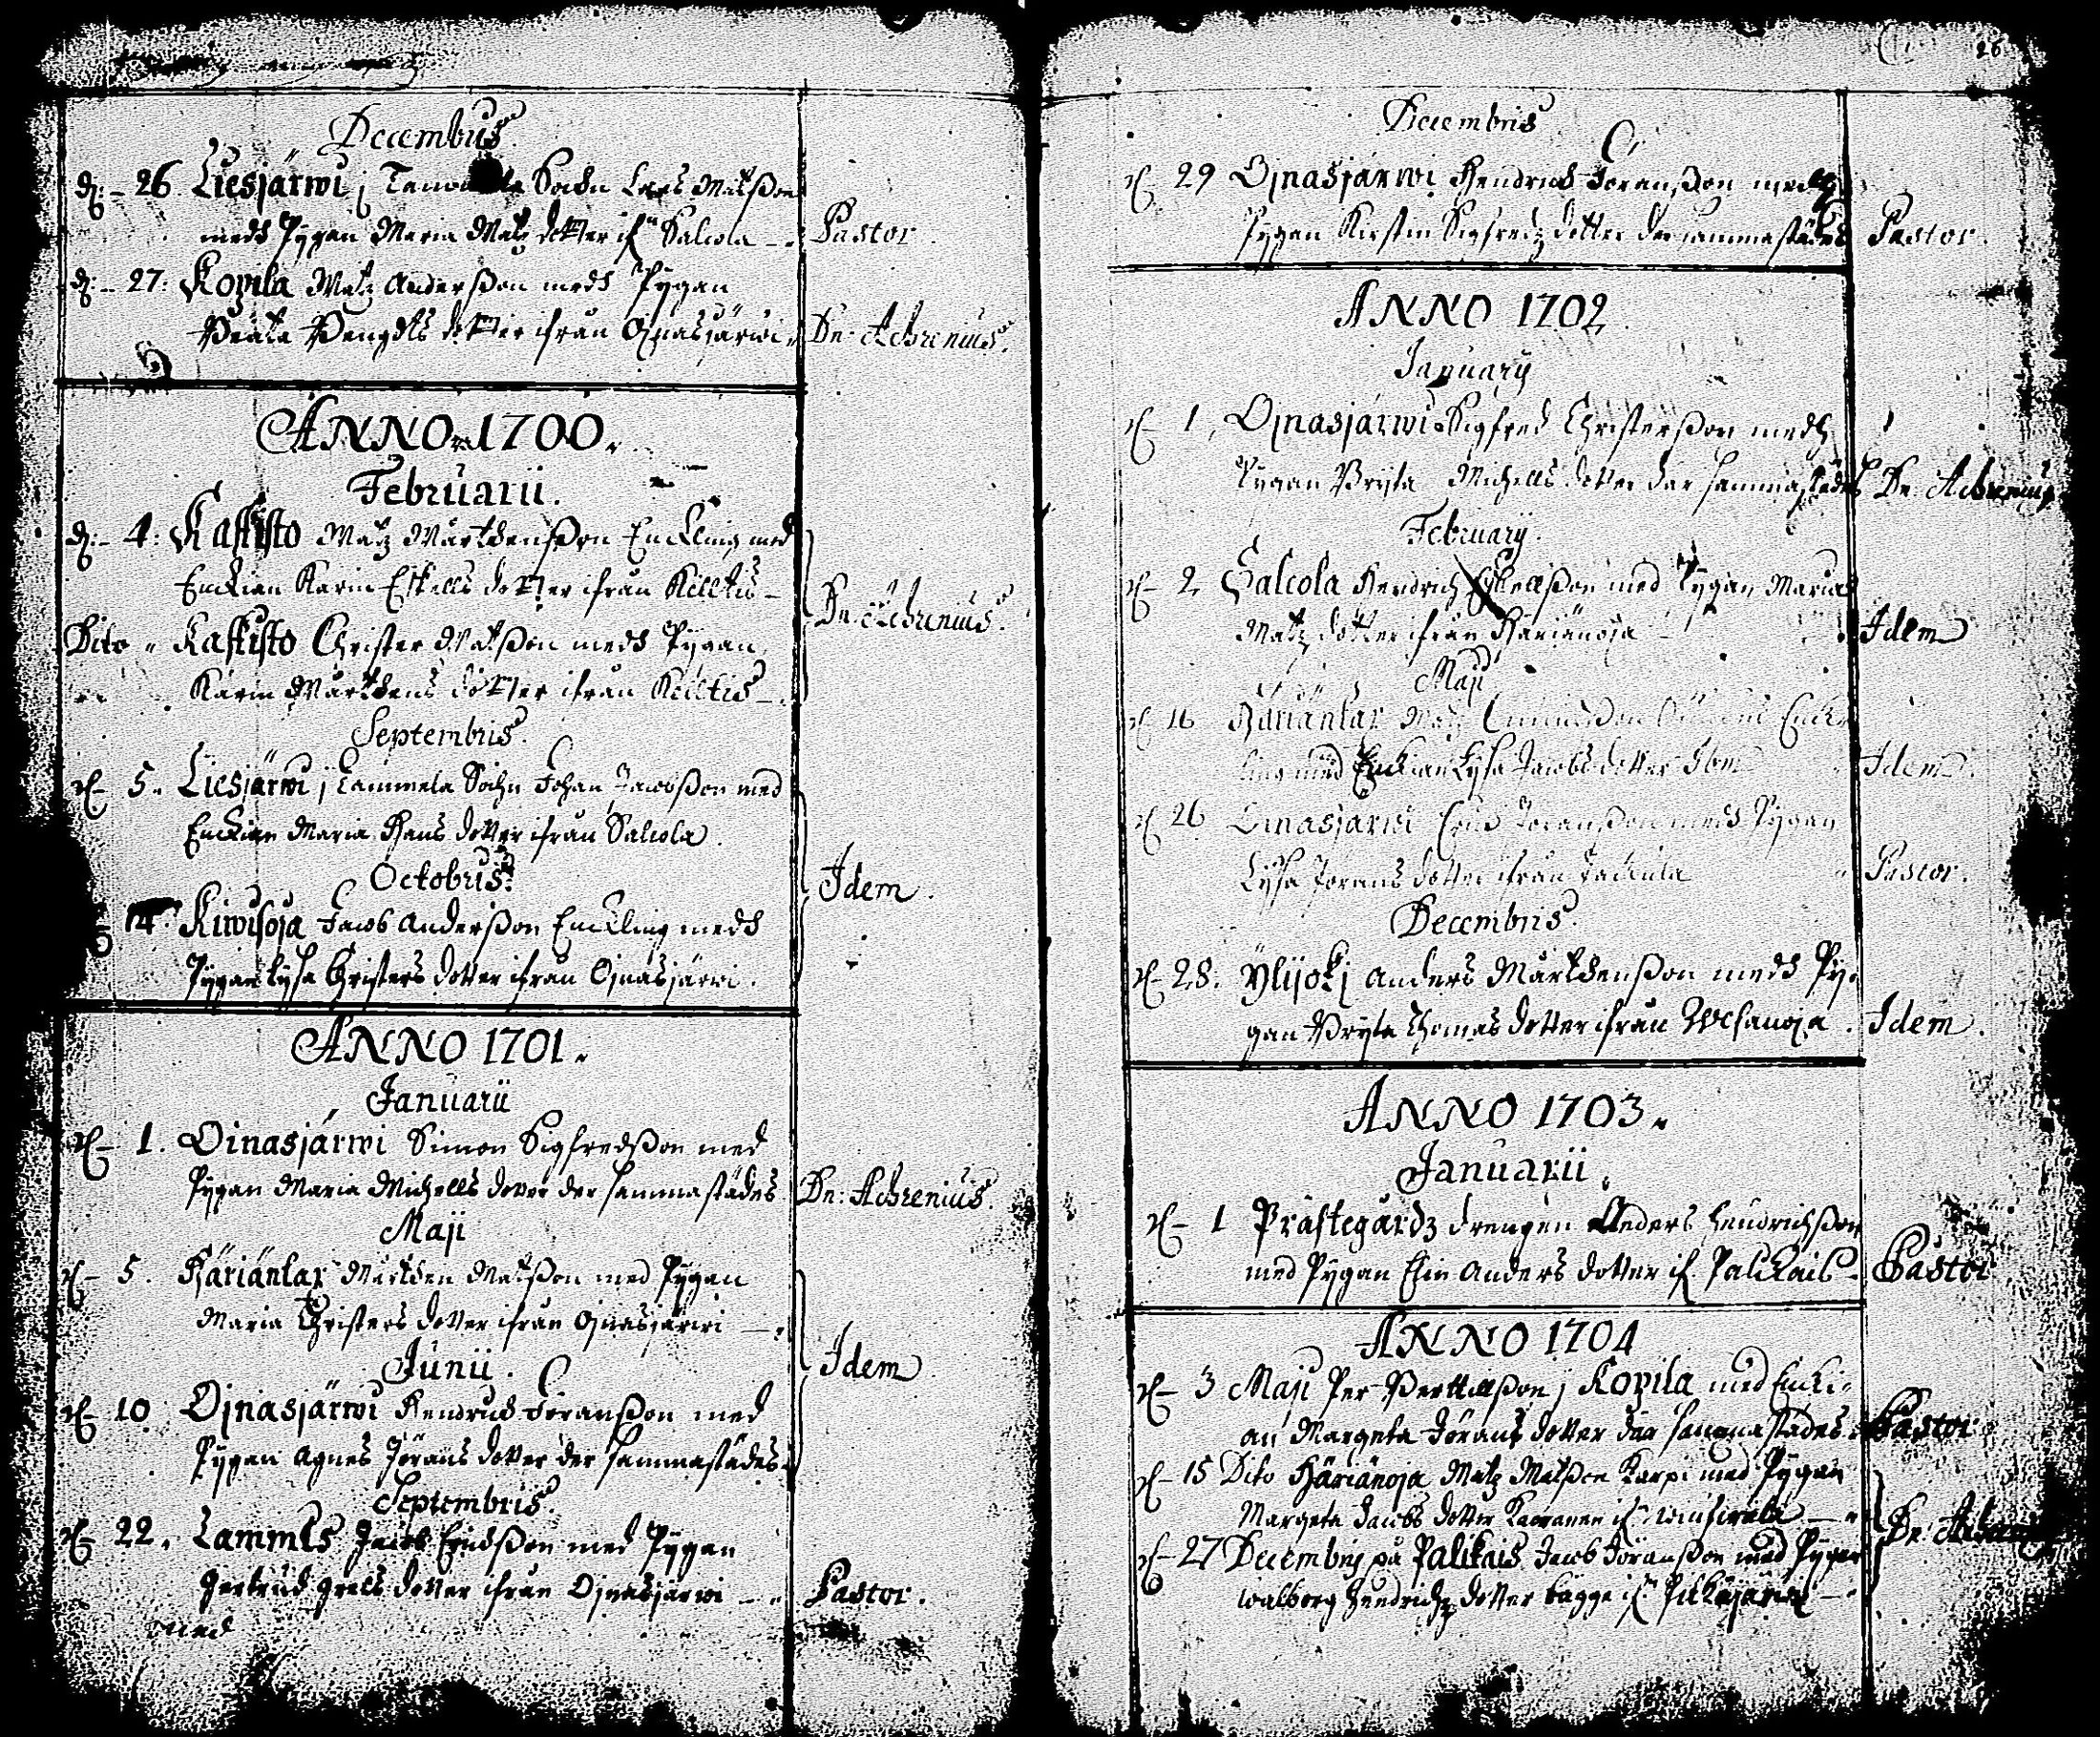 Decembris
d: 26 Liesjärwi j Sochn Lars Matsson
medh Pygan Maria Matz dotter ifn Salcola Pastor.
d: 27: Kopila Matz Andersson medh Pygan
Beata Bengdts dotter ifrån Ojnasjärwi. Dn: Achrenius.
ANNO 1700.
Februarii.
d: 4: Kaffisto Matz Mårthensson Enckling med
Enckian Karin Eskells dotter ifrån Killtis
Dito Kaffisto Christer Matsson medh Pygan
Karin Mårthens dotter ifrån Killtis Dn: Achrenius.
Septembris.
d 5. Liesjärwi j Tammela Sochn Johan Jacobsson med
Enckian Maria Hans dotter ifrån Salcola.
Octobris.
14. Kiwisoja Jacob Andersson Enckling medh
Pygan Lysa Christers dotter ifrån Ojnasjärwi. Idem.
ANNO 1701.
Januarii
d 1. Oinasjärwi Simon Sigfredsson med
Pygan Maria Michells dotter der sammastädes Dn: Achrenius.
Maji
d 5. Häriänlax Mårthen Matsson med Pygan
Maria Christers dotter ifrån Ojnasjärwi
Junii.
d 10 Ojnasjärwi Hendrich Joransson med
Pygan Agnes Jörans dotter der sammastädes Idem
Septembris.
d 22. Lammls Jacob Erichsson med Pygan
Gertrud Grels dotter ifrån Ojnasjärwi Pastor.
med
26
Decembris
d 29 Ojnasjärwi Hendrich Joransson medh
Pygan Kirstin Sigfredz dotter der sammastädes Pastor.
ANNO 1702.
January
d 1, Ojnasjärwi Sigfred Christersson medh
Pygan Bryta Michells dotter der sammastädes Dn: Achrenius
February.
d 2 Salcola Hendrich Eskellsson med Pygan Maria
Matz dotter ifrån Häriänoja Idem
Maji
d 16 Häriänlax Matz Enck-
ling med Enckian Lysa Jacobs dotter Ibm Idem.
d 26 Oinasjarwi Erich Joransson medh Pygan
Lysa Jorans dotter ifrån Pastor.
Decembris.
d 28. Ylijoki Anders Mårthensson medh Py-
gan Bryta Thomas dotter ifrån Idem.
ANNO 1703.
Januarii.
d 1 Prästegårdz drengen Anders Hendrichsson
med Pygan Elin Anders dotter if. Palikais Pastor
ANNO 1704
d 3 Maji Per Bertillsson j Kopila med Encki-
an Margeta Jörans dotter der sammastädes. Pastor
d 15 Dito Häriänoja Matz Matsson Karpi med Pygan
Margeta Jacobs dotter
d 27 Decembris på Palikais Jacob Joransson med Pygan
Walborg Hendrichz dotter bägge if. Pitkäjärwi